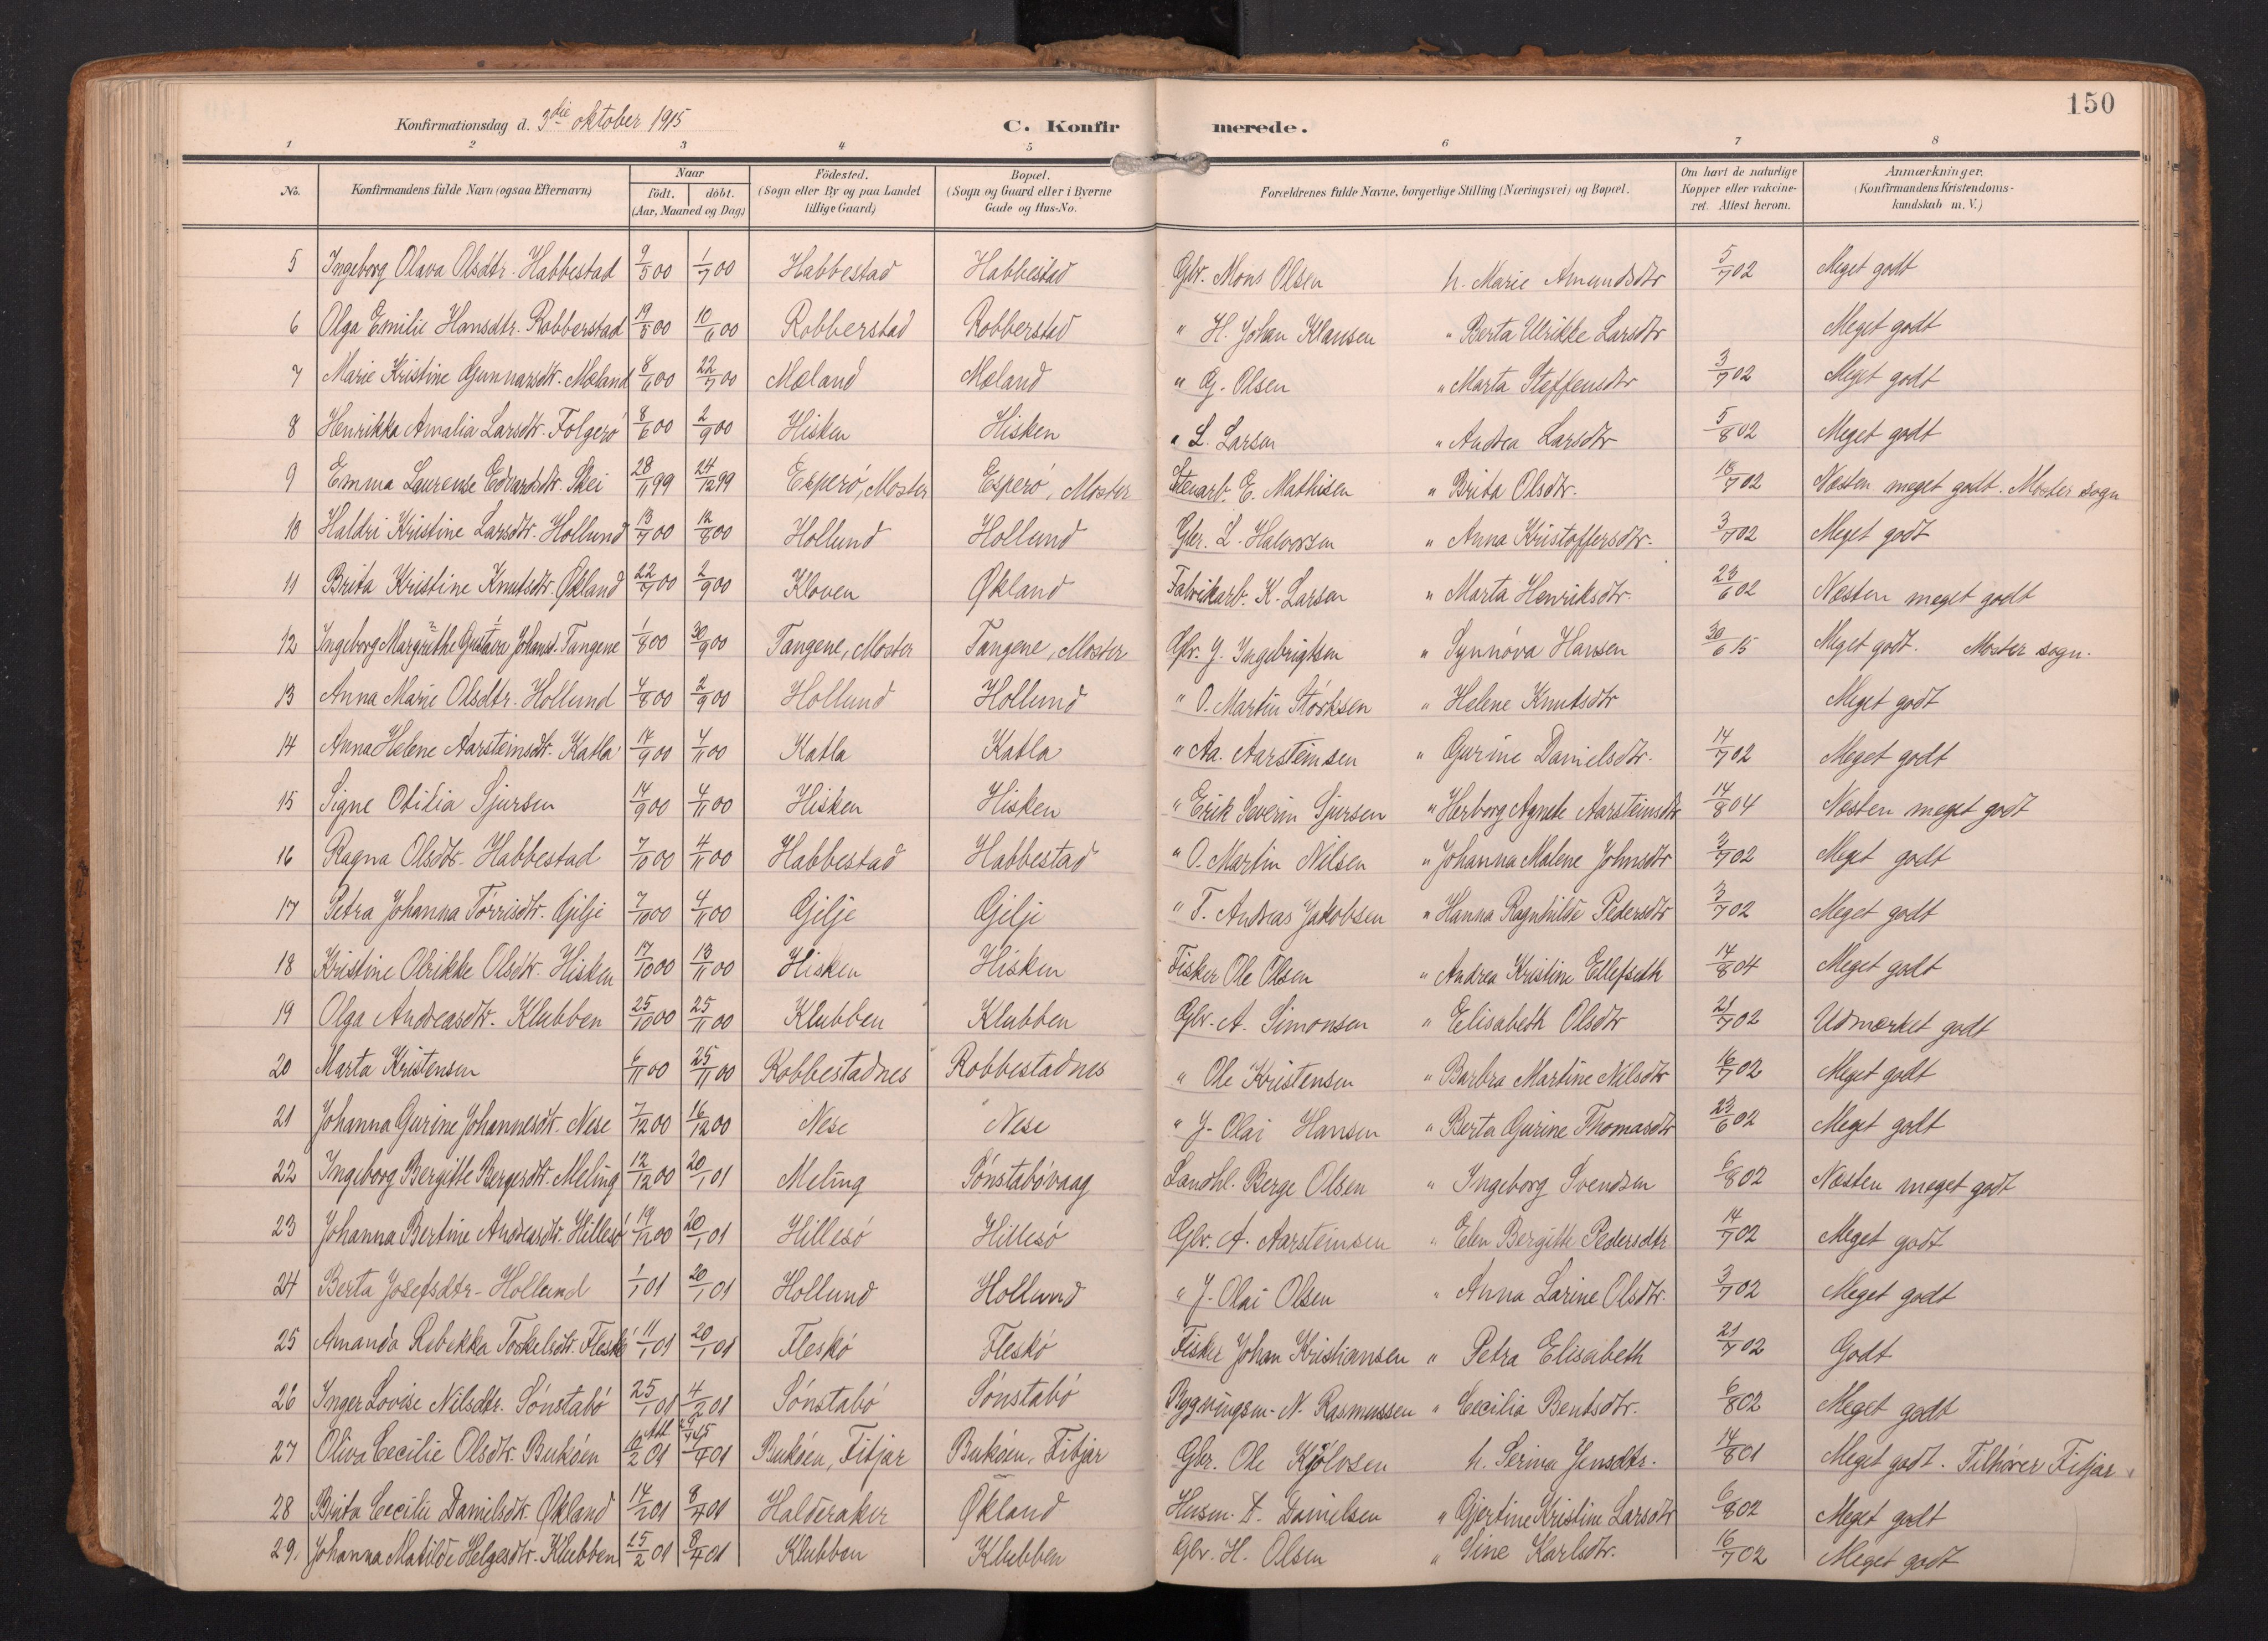 150
Konfirmationsdag d. 3die oktober 1915 C. Konfir merede.
1 2 3 4 5 6 7 8
No. Konfirmandens fulde Navn (ogsaa Efternavn) Naar født. døbt. (Aar, Maaned og Dag) Fødested. (Sogn eller By og paa Landet tillige Gaard) Bopæl. (Sogn og Gaard eller i Byerne Gade og Hus-No. Forældrenes fulde Navne, borgerlige Stilling (Næringsvei) og Bopæl. Om havt de naturlige Kopper eller vakcineret. Attest herom. Anmærkninger. (Konfirmandens Kristendomskundskab m. V.)
5 Ingeborg Olava Olsdtr. Habbestad 9/5 00 1/7 00 Habbestad Habbestad Gbr. Mons Olsen h. Marie Amundsdtr 5/7 02 Meget godt
6 Olga Emilie Hansdtr. Robberstad 19/5 00 10/6 00 Robberstad Robberstad " H. Johan Klausen " Berta Ulrikke Larsdtr Meget godt
7 Marie Kristine Gunnarsdtr. Mæland 8/6 00 22/7 00 Mæland Mæland " G. Olsen " Marta Steffensdtr 3/7 02 Meget godt
8 Henrikka Amalia Larsdtr. Folgerø 8/6 00 2/9 00 Hisken Hisken " L. Larsen " Andrea Larsdtr 5/8 02 Meget godt
9 Emma Laurense Edvardsdtr. Skei 28/11 99 24/12 99 Esperø, Moster Esperø, Moster Stenarb. E. Mathisen " Brita Olsdtr. 18/7 02 Næsten meget godt. Moster sogn
10 Haldri Kristine Larsdtr. Hollund 13/7 00 12/8 00 Hollund Hollund Gbr. L. Halvorsen " Anna Kristoffersdtr. 3/7 02 Meget godt
11 Brita Kristine Knutsdtr. Økland 22/7 00 2/9 00 Kloven Økland Fabrikarb. K. Larsen " Marta Henriksdtr. 23/6 02 Næsten meget godt
12 Ingeborg Margrethe Gustava Johansd. Tangene 1/8 00 30/9 00 Tangene, Moster Tangene, Moster Gbr. J. Ingebrigtsen " Synnøva Hansen 30/6 15 Meget godt. Moster sogn.
13 Anna Marie Olsdtr. Hollund 4/8 00 2/9 00 Hollund Hollund " O. Martin Størksen " Helene Knutsdtr Meget godt
14 Anna Helene Aarsteinsdtr. Katla 14/9 00 4/11 00 Katla Katla " Aa. Aarsteinsen " Gurine Danielsdtr. 14/7 02 Meget godt
15 Signe Otilia Sjursen 14/9 00 4/11 00 Hisken Hisken " Erik Severin Sjursen " Herborg Agnete Aarsteinsdtr 14/8 04 Næsten meget godt
16 Ragna Olsdtr. Habbestad 7/10 00 4/11 00 Habbestad Habbestad " O. Martin Nilsen " Johanna Malene Johnsdtr 3/7 02 Meget godt
17 Petra Johanna Torrisdtr. Gilje 7/10 00 4/11 00 Gilje Gilje " T. Andreas Jakobsen " Hanna Ragnhilde Pedersdtr 3/7 02 Meget godt
18 Kristine Olrikke Olsdtr. Hisken 17/10 00 18/11 00 Hisken Hisken Fisker Ole Olsen " Andrea Kristine Ellefseth 14/8 04 Meget godt
19 Olga Andreasdtr. Klubben 25/10 00 25/11 00 Klubben Klubben Gbr. A. Simonsen " Elisabeth Olsdtr 21/7 02 Udmærket godt
20 Marta Kristensen 6/11 00 25/11 00 Robbestadnes Robbestadnes " Ole Kristensen " Barbra Martine Nilsdtr 16/7 02 Meget godt
21 Johanna Gurine Johannesdtr. Nese 7/12 00 16/12 00 Nese Nese " J. Olai Hansen " Berta Gurine Thomasdtr 23/6 02 Meget godt
22 Ingeborg Bergitte Bergesdtr. Meling 12/12 00 20/1 01 Meling Sønstabøvaag Landhl. Berge Olsen " Ingeborg Svendsen 6/8 02 Næsten meget godt
23 Johanna Bertine Andreasdtr. Hillesø 19/12 00 20/1 01 Hillesø Hillesø Gbr. A. Aarsteinsen " Elen Bergitte Pedersdtr 14/7 02 Meget godt
24 Berta Josefsdtr. Hollund 1/1 01 20/1 01 Hollund Hollund " J. Olai Olsen " Anna Larine Olsdtr. 3/7 02 Meget godt
25 Amanda Rebekka Torkelsdtr. Fleskø 11/1 01 20/1 01 Fleskø Fleskø Fisker Johan Kristiansen " Petra Elisabeth 21/7 02 Godt
26 Inger Lovise Nilsdtr. Sønstabø 25/1 01 4/2 01 Sønstabø Sønstabø Bygningsm. N. Rasmussen " Cecilia Bentsdtr. 6/8 02 Meget godt
27 Oliva Cecilie Olsdtr. Bukøen 10/2 01 /4 01 Bukøen, Fitjar Bukøen, Fitjar Gbr. Ole Kjølvsen h. Serina Jensdtr. 14/8 01 Meget godt. Tilhører Fitjar
28 Brita Cecilie Danielsdtr. Økland 14/2 01 8/4 01 Halderaker Økland Husm. D. Danielsen " Gjertine Kristine Larsdtr 6/8 02 Meget godt
29. Johanna Matilde Helgesdtr. Klubben 25/2 01 8/4 01 Klubben Klubben Gbr. H. Olsen " Sine Karlsdtr. 16/7 02 Meget godt